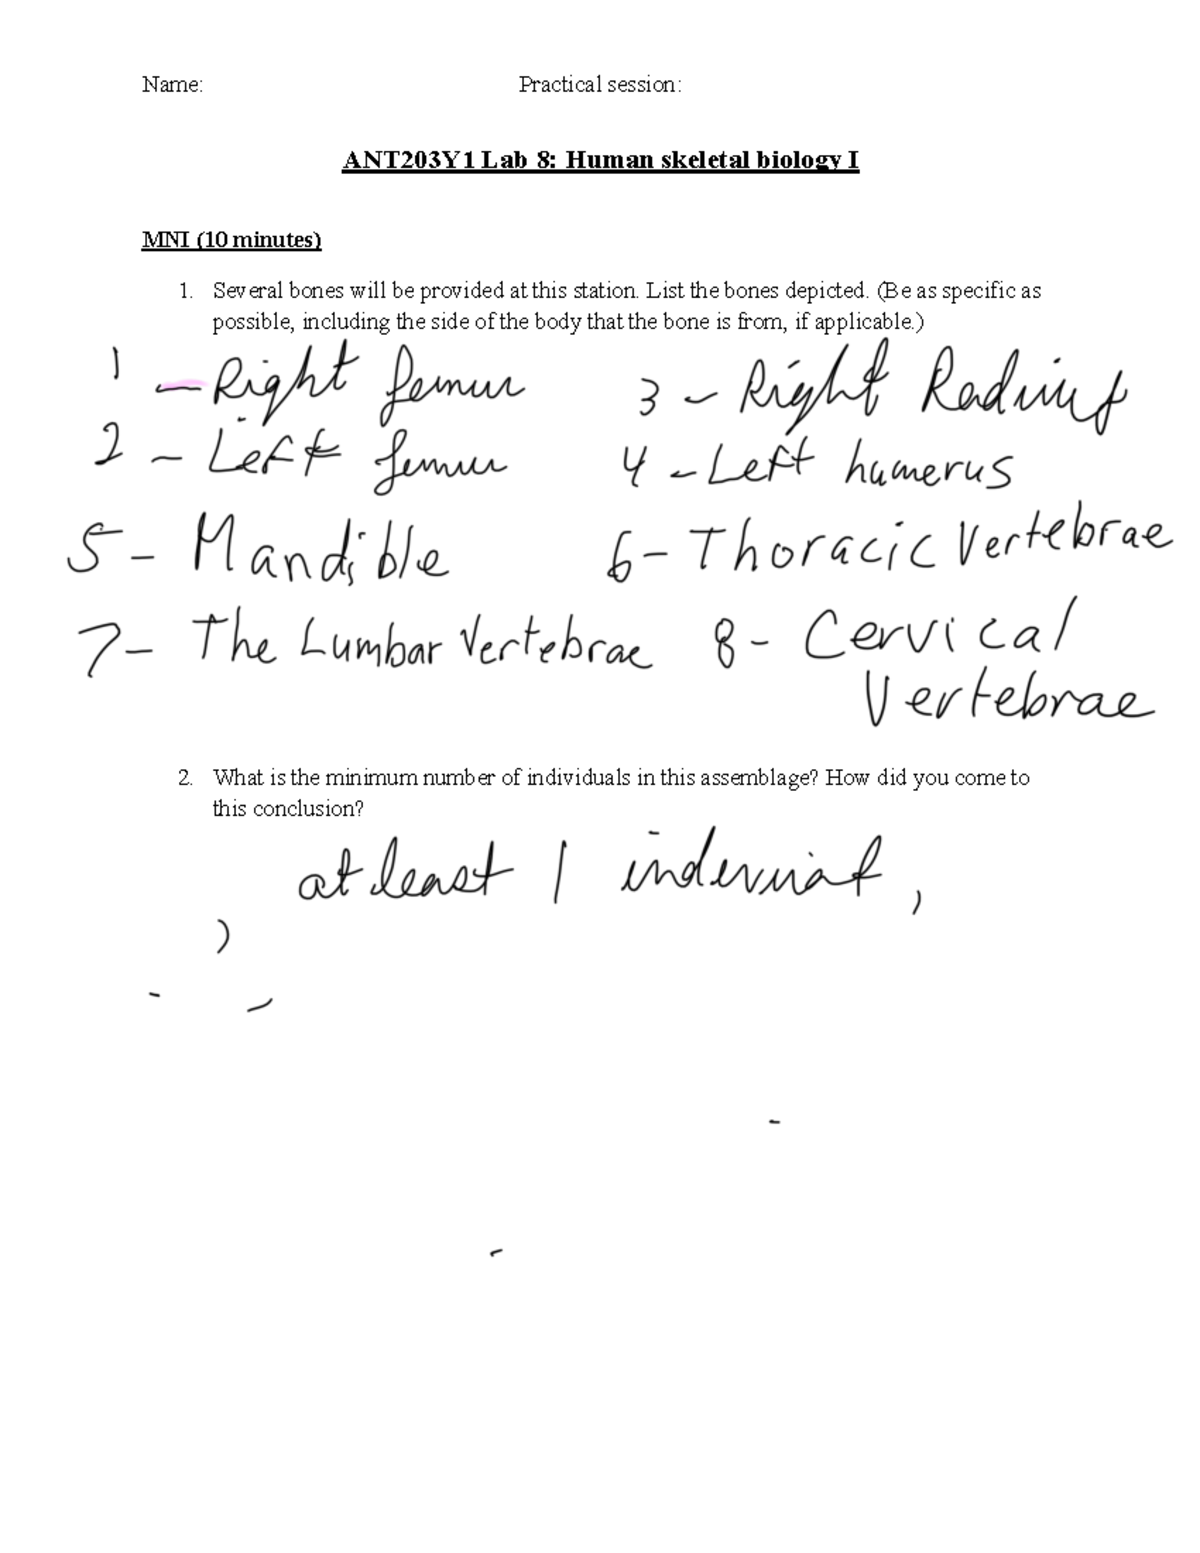 Name: Practical session:
ANT203Y1 Lab 8: Human skeletal biology I
MNI (10 minutes)
1. Several bones will be provided at this station. List the bones depicted. (Be as specific as
possible, including the side of the body that the bone is from, if applicable.)
1 – Right femur 3 – Right Radius
2 – Left femur 4 – Left humerus
5 – Mandible 6 – Thoracic Vertebrae
7 – The Lumbar Vertebrae 8 – Cervical
Vertebrae
2. What is the minimum number of individuals in this assemblage? How did you come to
this conclusion?
at least 1